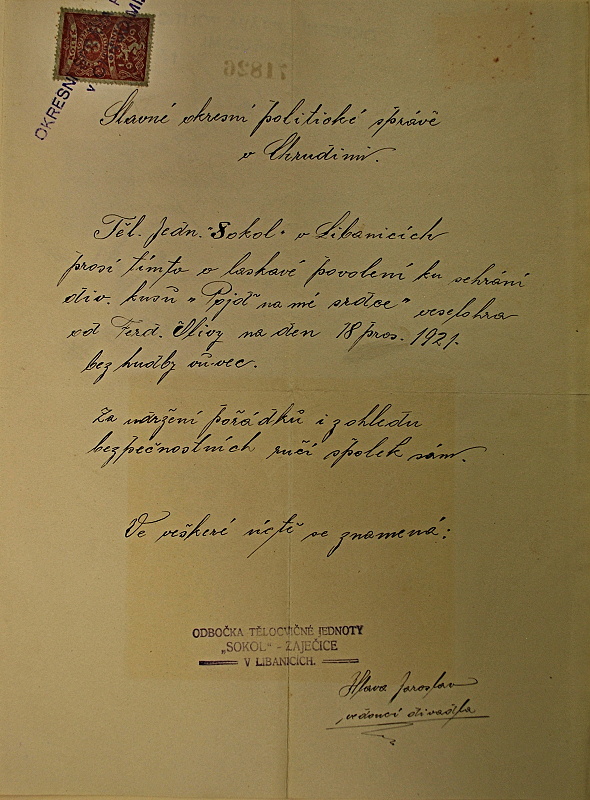 OKRESNÍ
v
71826
Slavné okresní politické správě
v Chrudimi.
Těl. Jedn. "Sokol" v Libanicích
prosí tímto o laskavé povolení ku sehrání
div. kusů „Pojď na mé srdce" veselohra
od Ferd. Olivy na den 18 pros. 1921.
bez hudby vůvec.
Za udržení pořádků i z ohledu
bezpečnostních ručí spolek sám.
Ve veškeré úctě se znamená:
ODBOČKA TĚLOCVIČNÉ JEDNOTY
„SOKOL" - ZAJEČICE
V LIBANICÍCH.
Hlava Jaroslav
vedoucí divadla